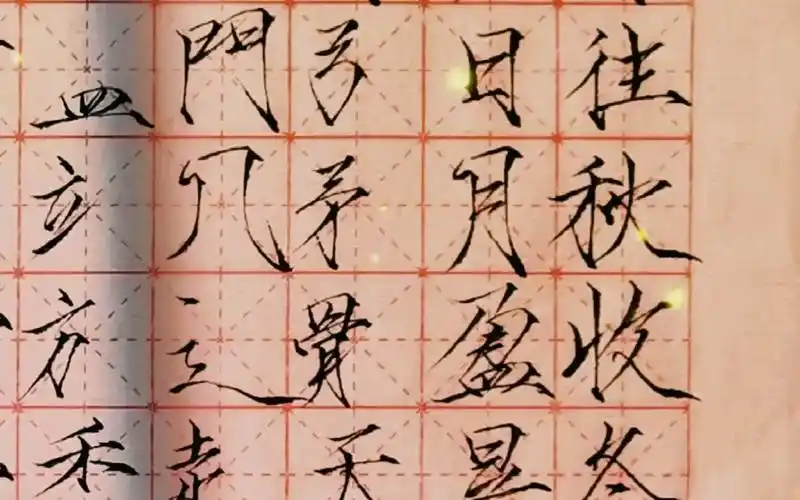 往秋收冬
日月盈昃
弓矛骨天
門几辶
皿立方禾